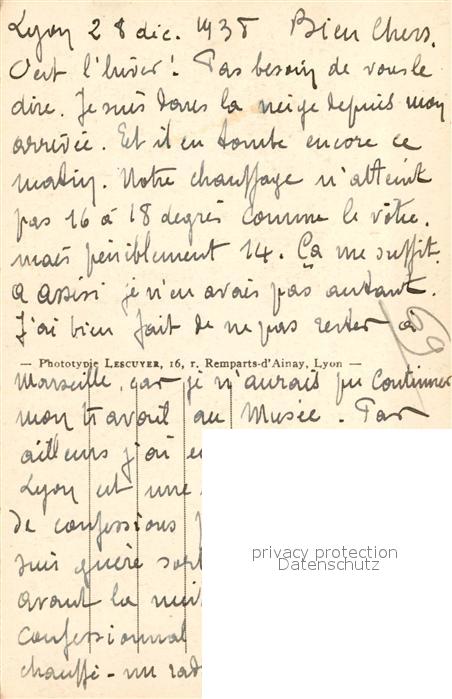 Lyon 28 dic. 1938 Bien Chers,
C'est l'hiver! Pas besoin de vous le
dire. Je suis dans la neige depuis mon
arrivée. Et il en tombe encore ce
matin. Notre chauffage n'atteint
pas 16 à 18 degrés comme le vôtre.
mais péniblement 14. Ça me suffit.
a Assisi je n'en avais pas autant.
J'ai bien fait de ne pas rester à
— Phototypie LESCUYER, 16, r. Remparts-d'Ainay, Lyon —
Marseille, car je n'aurais pu continuer
mon travail au Musée. Par
ailleurs j'ai
Lyon est une
de confessions
suis guère
avant la nuit
confessionnal
chauffé - un
privacy protection
Datenschutz